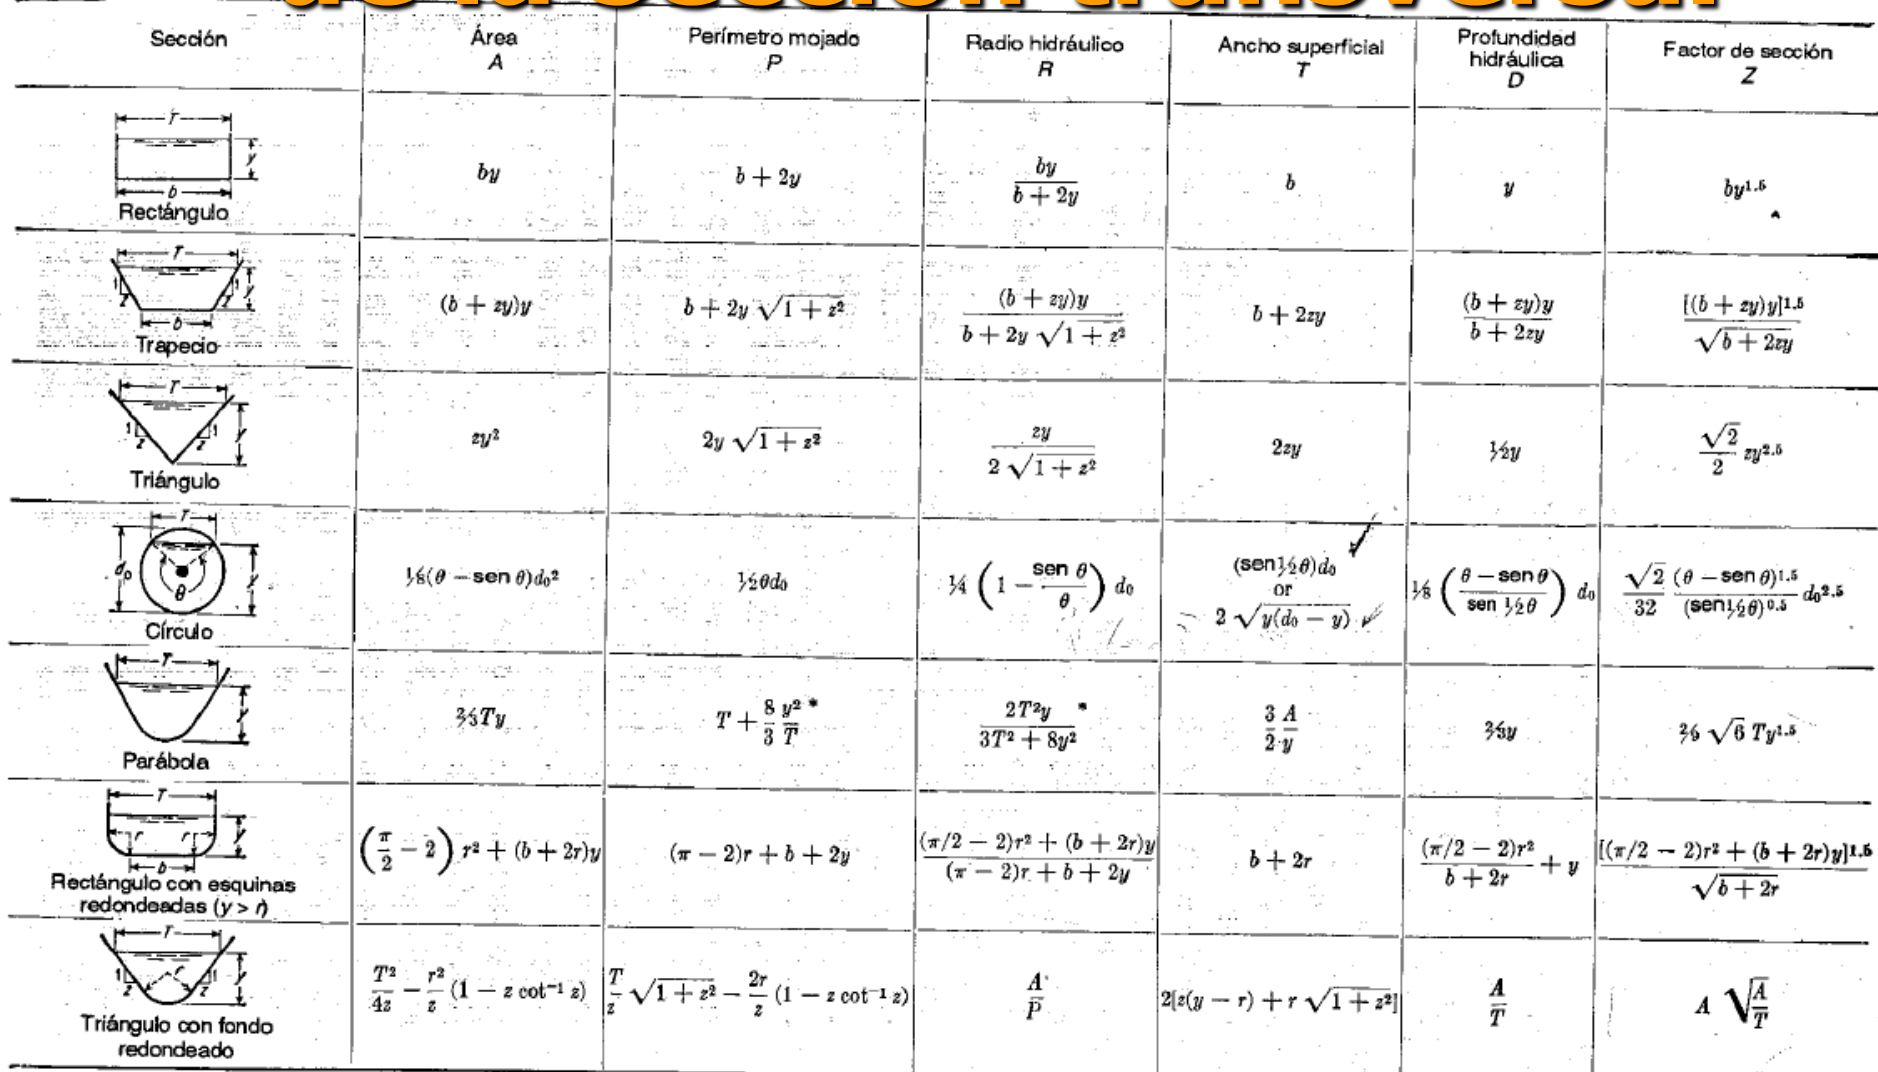 de la sección transversal
Sección
Área
A
Perímetro mojado
P
Radio hidráulico
R
Ancho superficial
T
Profundidad
hidráulica
D
Factor de sección
Z
T
y
b
Rectángulo
by
b + 2y
by / (b + 2y)
b
y
by^1.5
T
1
z
1
z
y
b
Trapecio
(b + zy)y
b + 2y √(1 + z²)
(b + zy)y / (b + 2y √(1 + z²))
b + 2zy
(b + zy)y / (b + 2zy)
[(b + zy)y]^1.5 / √(b + 2zy)
T
1
z
1
z
y
Triángulo
zy²
2y √(1 + z²)
zy / (2 √(1 + z²))
2zy
½y
(√2 / 2) zy^2.5
T
d₀
θ
y
Círculo
⅛(θ − sen θ)d₀²
½θd₀
¼ (1 − sen θ / θ) d₀
(sen ½θ)d₀
or
2 √(y(d₀ − y))
⅛ ((θ − sen θ) / (sen ½θ)) d₀
(√2 / 32) ((θ − sen θ)^1.5 / (sen ½θ)^0.5) d₀^2.5
T
y
Parábola
⅔Ty
T + (8/3) (y²/T) *
2T²y / (3T² + 8y²) *
(3/2) (A/y)
⅔y
2/9 √6 Ty^1.5
T
r
r
y
b
Rectángulo con esquinas
redondeadas (y > r)
(π/2 − 2) r² + (b + 2r)y
(π − 2)r + b + 2y
((π/2 − 2)r² + (b + 2r)y) / ((π − 2)r + b + 2y)
b + 2r
(π/2 − 2)r² / (b + 2r) + y
[(π/2 − 2)r² + (b + 2r)y]^1.5 / √(b + 2r)
T
1
z
r
1
z
y
Triángulo con fondo
redondeado
T²/4z − (r²/z) (1 − z cot⁻¹ z)
(T/z) √(1 + z²) − (2r/z) (1 − z cot⁻¹ z)
A / P
2[z(y − r) + r √(1 + z²)]
A / T
A √(A / T)